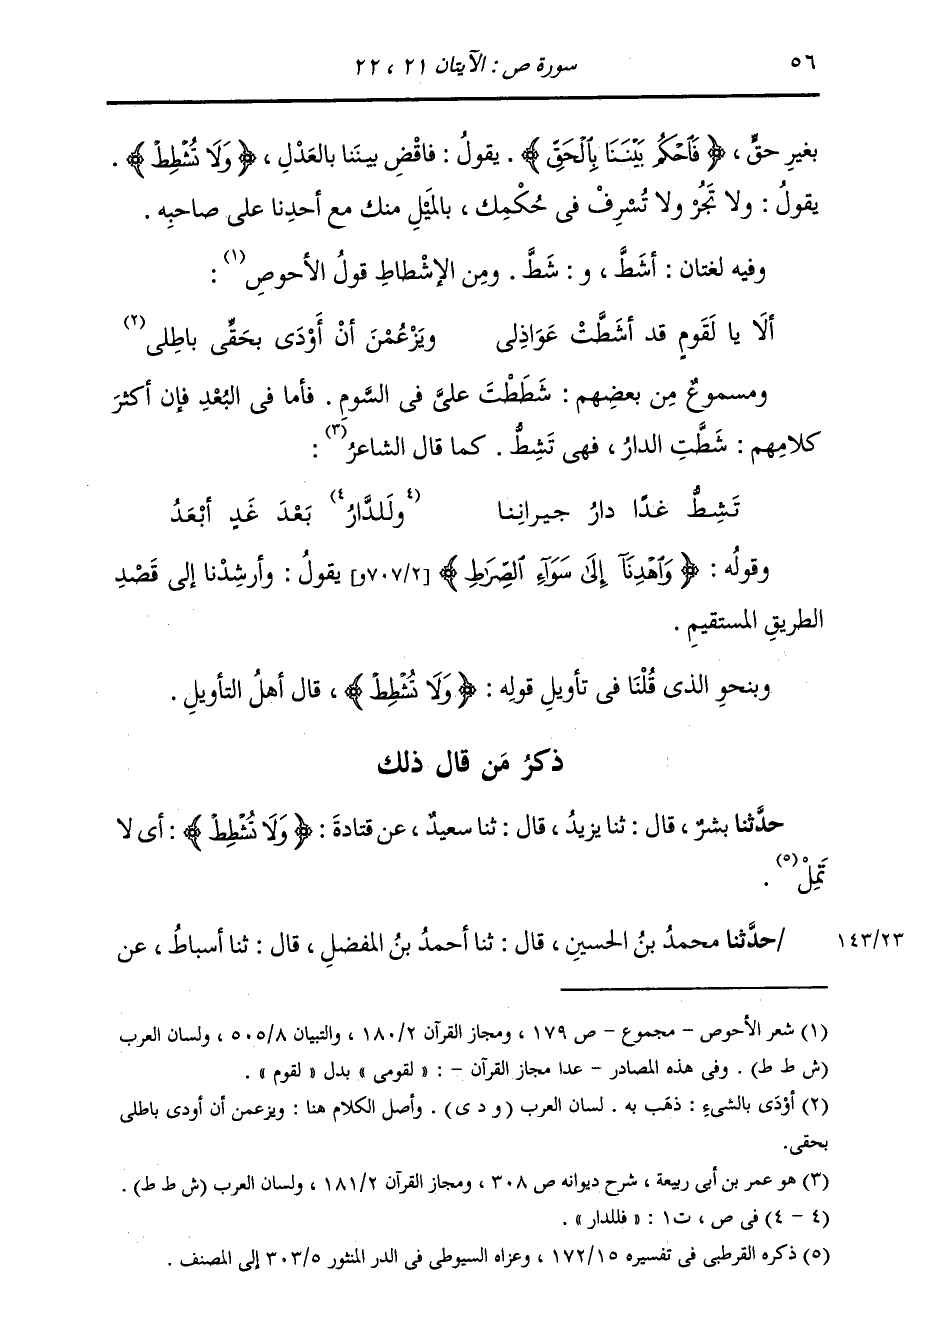 ٥٦
سورة ص : الآيتان ٢١ ، ٢٢
بغيرِ حقٍّ ، ﴿ فَاحْكُم بَيْنَنَا بِالْحَقِّ ﴾ . يقولُ : فاقْضِ بينَنا بالعَدْلِ ، ﴿ وَلَا تُشْطِطْ ﴾ .
يقولُ : ولا تَجُرْ ولا تُسْرِفْ فى حُكْمِك ، بالمَيْلِ منك مع أحدِنا على صاحبِه .
وفيه لغتان : أشَطَّ ، و : شَطَّ . ومِن الإشْطاطِ قولُ الأحوصِ(١) :
ألَا يا لَقَومٍ قد أشَطَّتْ عَوَاذِلى ويَزْعُمْنَ أنْ أَوْدَى بحَقِّى باطِلى(٢)
ومسموعٌ مِن بعضِهم : شَطَطْتَ علىَّ فى السَّومِ . فأما فى البُعْدِ فإن أكثرَ
كلامِهم : شَطَّتِ الدارُ ، فهى تَشِطُّ . كما قال الشاعرُ(٣) :
تَشِطُّ غدًا دارُ جيرانِنا (٤ولَلدَّارُ٤) بَعْدَ غَدٍ أبْعَدُ
وقولُه : ﴿ وَاهْدِنَآ إِلَى سَوَآءِ الصِّرَاطِ ﴾ [٧٠٧/٢و] يقولُ : وأرشِدْنا إلى قَصْدِ
الطريقِ المستقيمِ .
وبنحوِ الذى قُلْنَا فى تأويلِ قولِه : ﴿ وَلَا تُشْطِطْ ﴾ ، قال أهلُ التأويلِ .
ذكرُ مَن قال ذلك
حدَّثنا بشرٌ ، قال : ثنا يزيدُ ، قال : ثنا سعيدٌ ، عن قتادةَ : ﴿ وَلَا تُشْطِطْ ﴾ : أى لا
تَمِلْ(٥) .
١٤٣/٢٣ /حدَّثنا محمدُ بنُ الحسينِ ، قال : ثنا أحمدُ بنُ المفضلِ ، قال : ثنا أسباطُ ، عن
(١) شعر الأحوص – مجموع – ص ١٧٩ ، ومجاز القرآن ١٨٠/٢ ، والتبيان ٥٠٥/٨ ، ولسان العرب
(ش ط ط) . وفى هذه المصادر – عدا مجاز القرآن – : « لقومى » بدل « لقوم » .
(٢) أوْدَى بالشىءِ : ذهَب به . لسان العرب (و د ى) . وأصل الكلام هنا : ويزعمن أن أودى باطلى
بحقى.
(٣) هو عمر بن أبى ربيعة ، شرح ديوانه ص ٣٠٨ ، ومجاز القرآن ١٨١/٢ ، ولسان العرب (ش ط ط) .
(٤ – ٤) فى ص ، ت١ : « فللدار » .
(٥) ذكره القرطبى فى تفسيره ١٧٢/١٥ ، وعزاه السيوطى فى الدر المنثور ٣٠٣/٥ إلى المصنف .